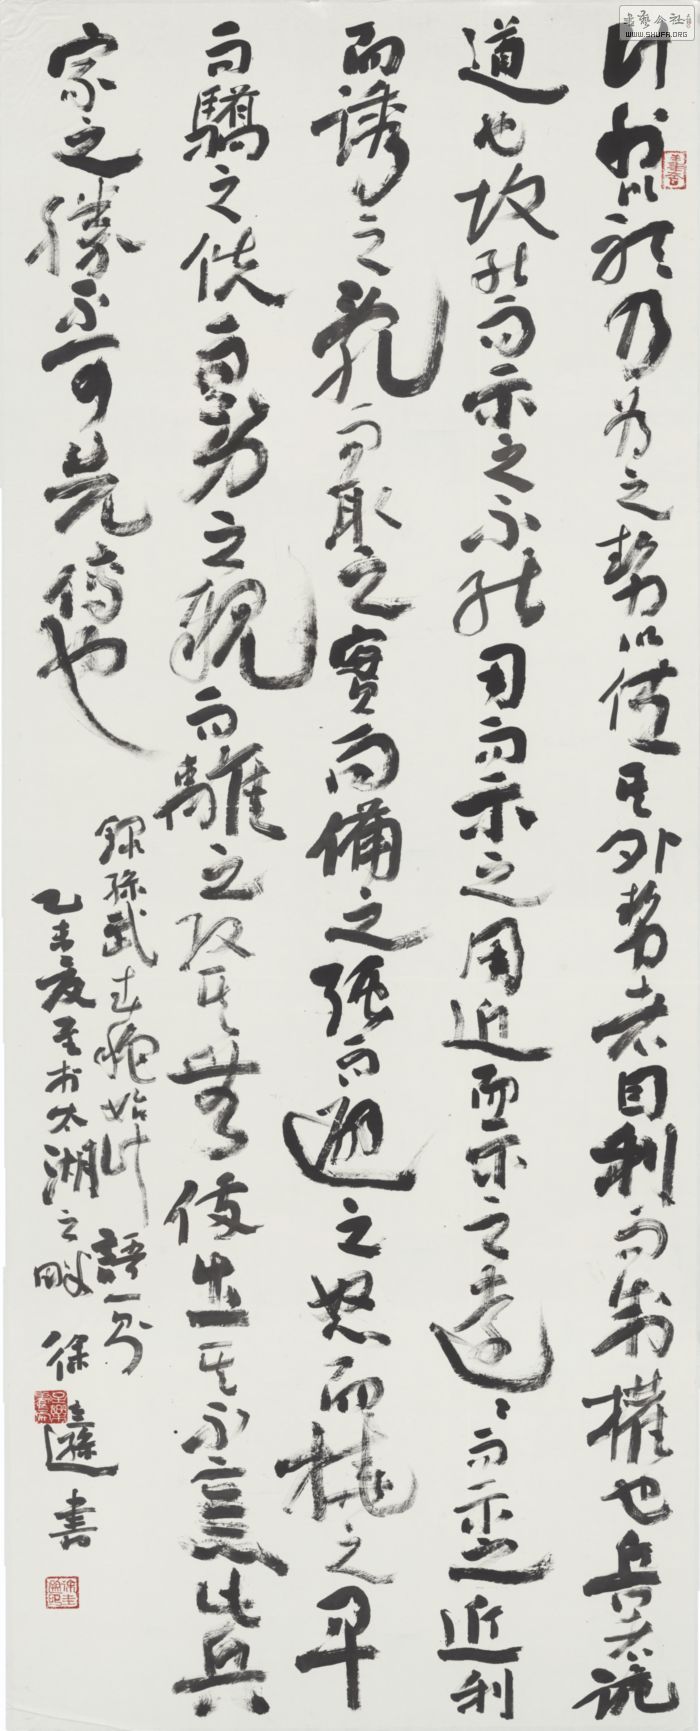 计利以聽乃为之勢以佐其外勢者因利而制權也兵者詭
道也故能而示之不能用而示之不用近而示之遠遠而示之近利
而誘之亂而取之實而備之强而避之怒而撓之卑
而驕之佚而勞之親而離之攻其無備出其不意此兵
家之勝不可先傳也
錄孫武
語一則
乙未夏至於太湖之畔 徐 書
書藝公社
WWW.SHUFA.ORG